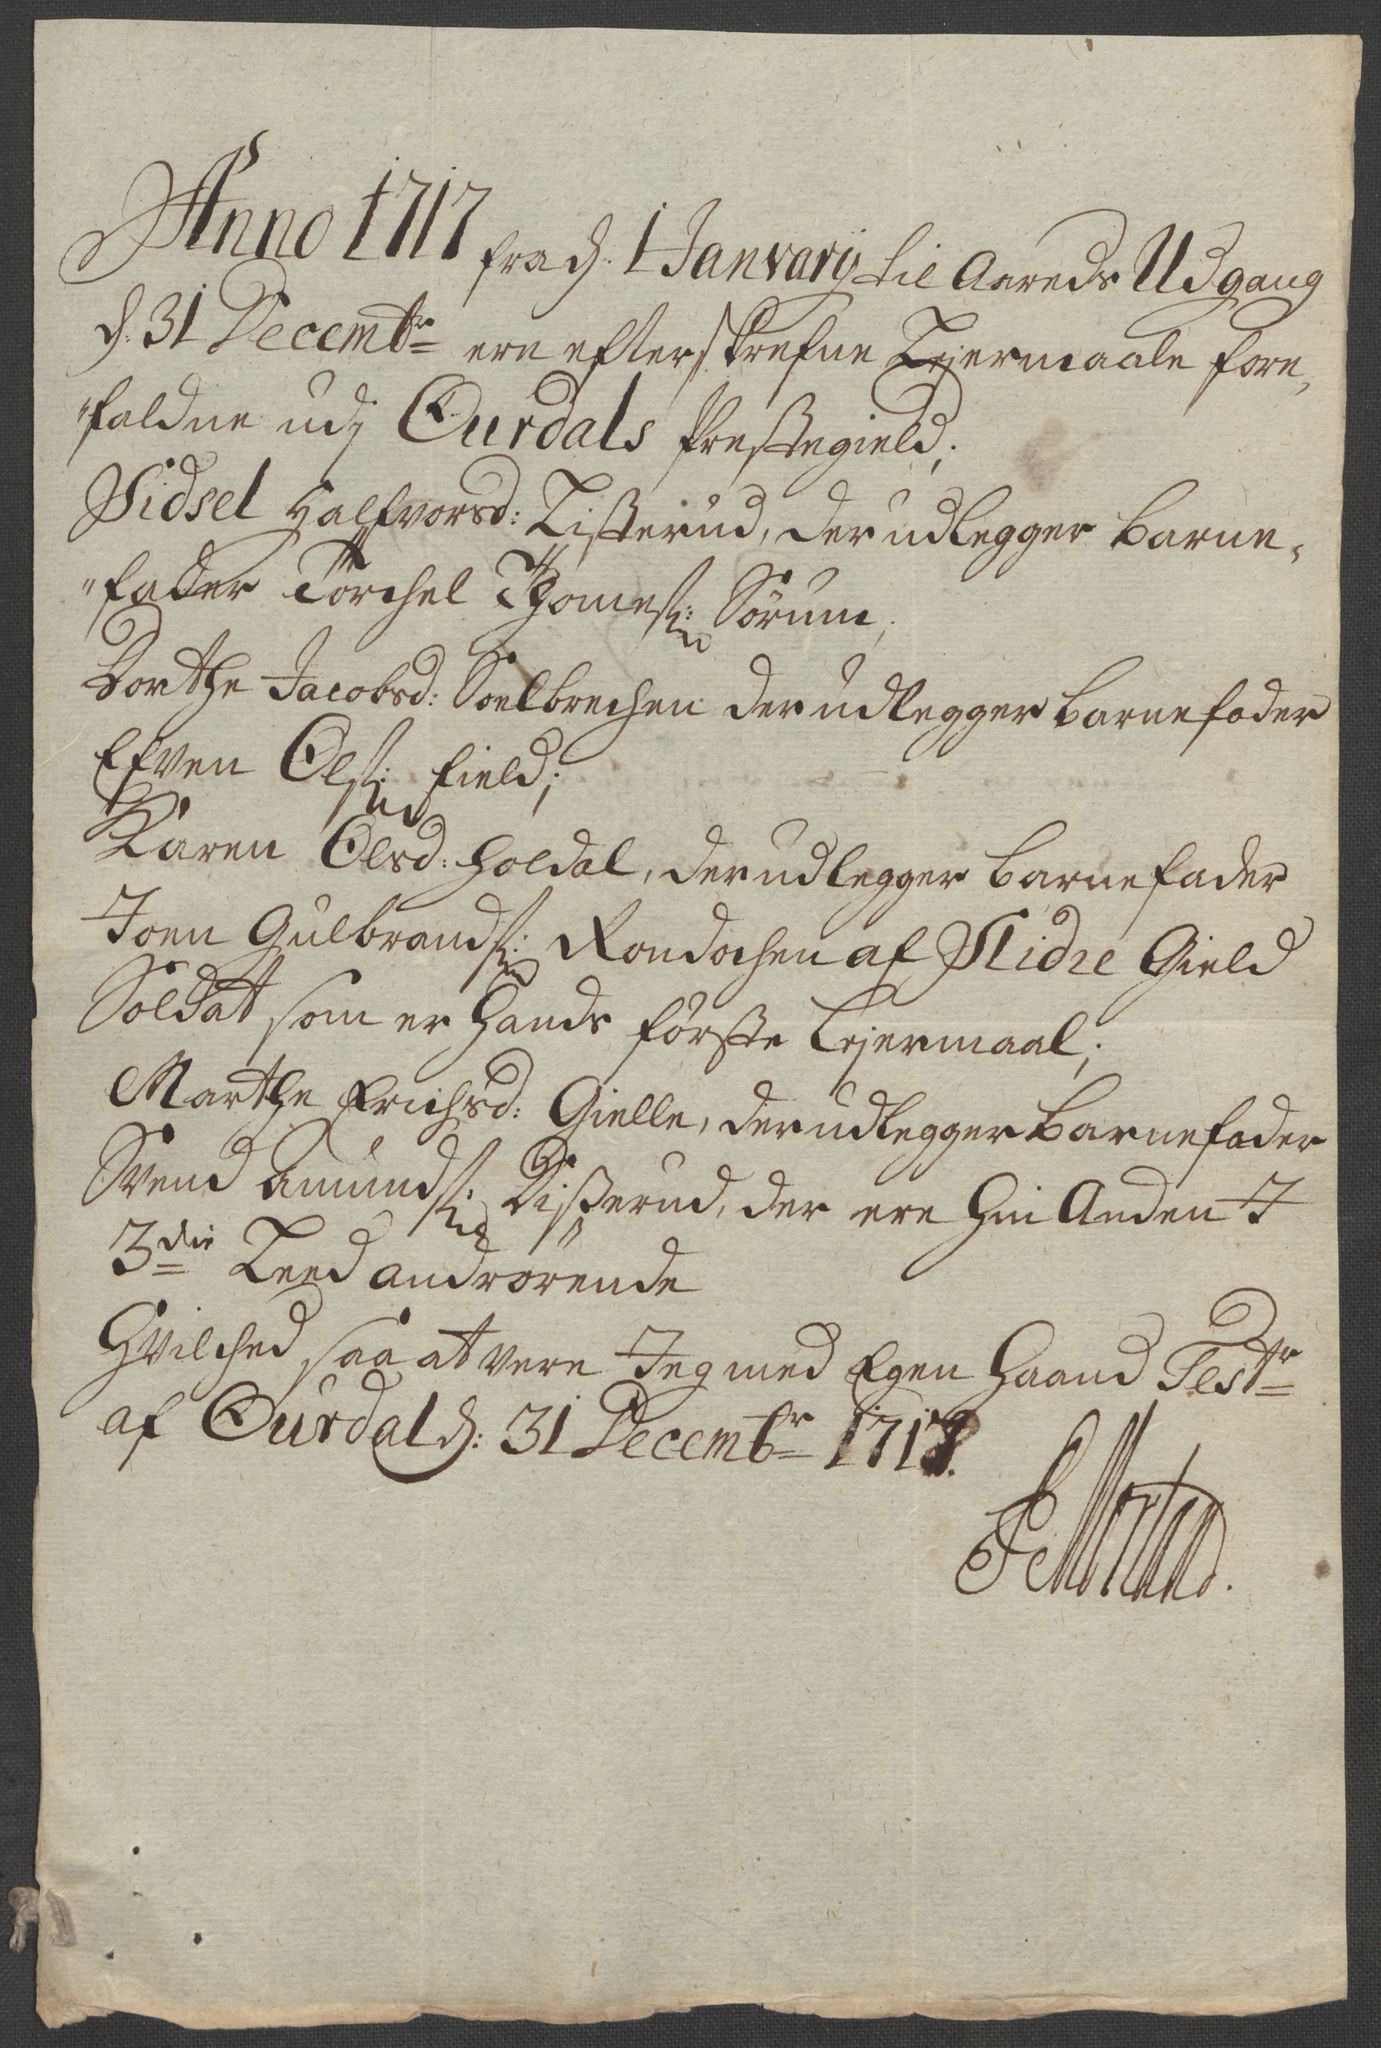 Anno 1717 fra d: 1 Janvarij til Aareds Udgang
d: 31 Decembr ere efterskrefne Lejermaale fore,
"faldne udj Ourdals Prestegield;
Sidsel Halfvorsd: Tisserud, der udlegger Barne,
"fader Torchel Thomes: Sørum,
Dorthe Jacobsd: Soelbrechen der udlegger barnefader
Efven Ols: Field;
Karen Olsd: Holdal, der udlegger barnefader
Joen Gulbrands: Rondochen af Slidre Gield
Soldat som er Hands første Lejermaal;
Marthe Erichsd: Gielle, der udlegger barnefader
Svend Amunds: Disserud, der ere hin Anden J
3die Leed andrørende
Hvilched saa at vere Jeg med Egen Haand Testr
af Ourdal d: 31 Decembr 1717.